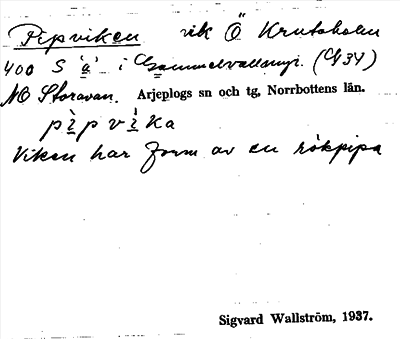 Pipviken vik Ö Krutsholm
400 S "a" i Gammelvallsmyr. (C 34)
NO Storavan. Arjeplogs sn och tg, Norrbottens län.
pìpvìka
Viken har form av en rökpipa
Sigvard Wallström, 1937.